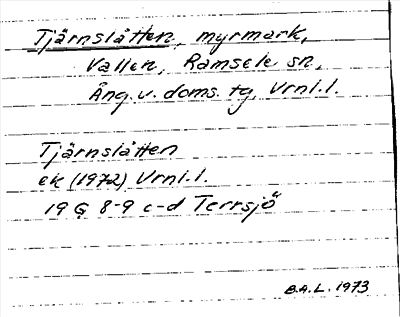 Tjärnslåtten, myrmark,
Vallen, Ramsele sn,
Ång. v. doms. tg, Vrnl. l.
Tjärnslåtten
ek (1972) Vrnl. l.
19 G 8-9 c-d Terrsjö
B.A.L. 1973